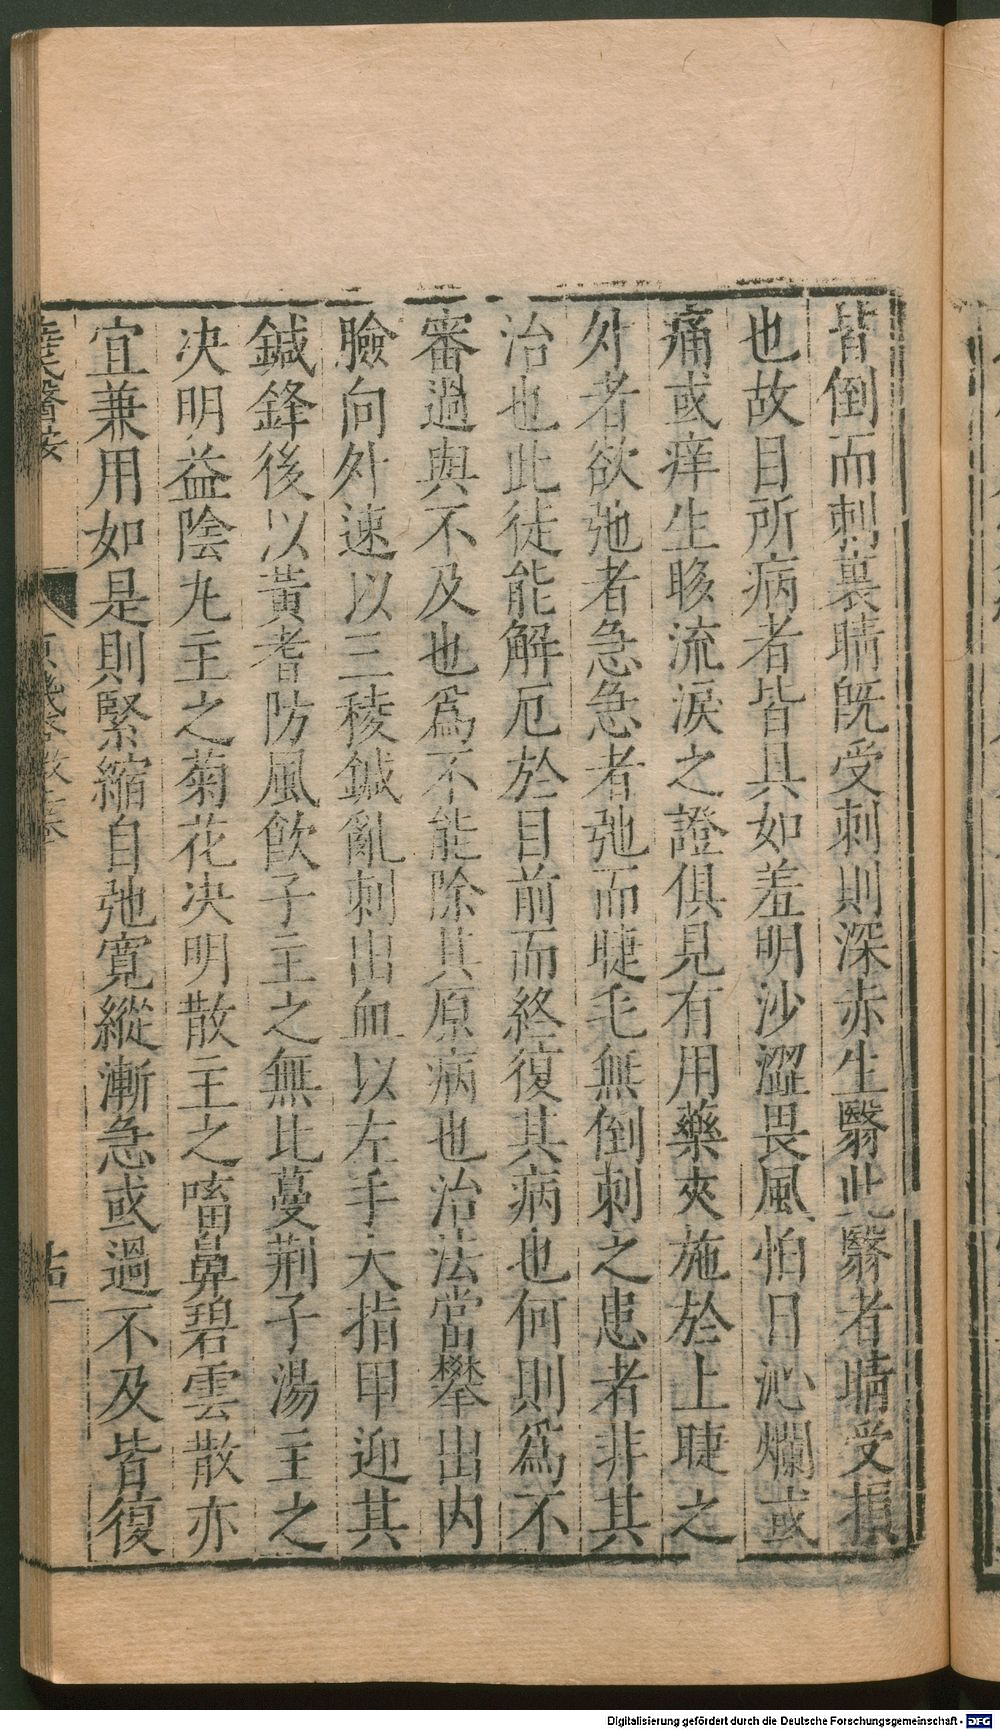 皆倒而刺裏睛旣受刺則深赤生翳此翳者睛受損
也故目所病者皆具如羞明沙澀畏風怕日沁爛或
痛或痒生眵流淚之證俱見有用藥夾施於上睫之
外者欲弛者急急者弛而睫毛無倒刺之患者非其
治也此徒能解厄於目前而終復其病也何則爲不
審過與不及也爲不能除其原病也治法當攀出内
瞼向外速以三稜鍼亂刺出血以左手大指甲迎其
鍼鋒後以黃耆防風飲子主之無比蔓荆子湯主之
决明益陰丸主之菊花决明散主之㗜鼻碧雲散亦
宜兼用如是則緊縮自弛寬縱漸急或過不及皆復
薛氏醫按
原機啓微上卷
Digitalisierung gefördert durch die Deutsche Forschungsgemeinschaft - DFG